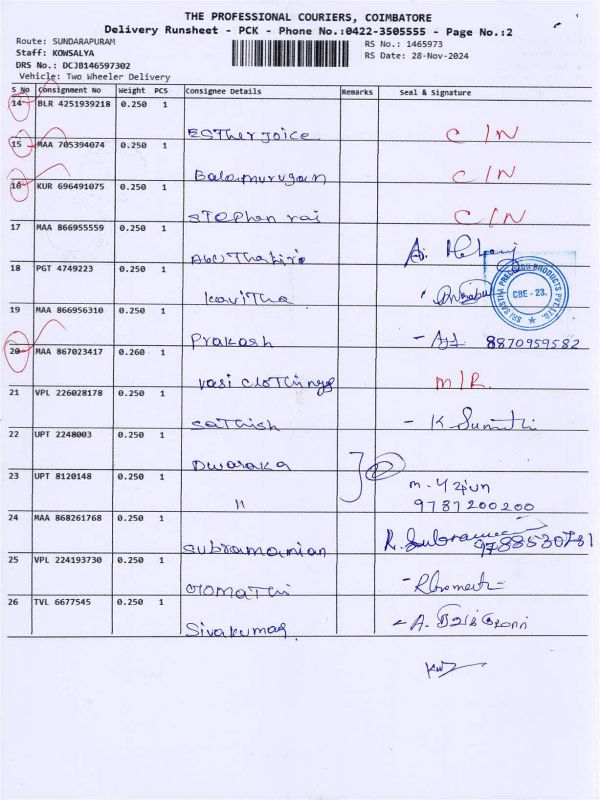 THE PROFESSIONAL COURIERS, COIMBATORE
Delivery Runsheet - PCK - Phone No.:0422-3505555 - Page No.:2
Route: SUNDARAPURAM
Staff: KOWSALYA
DRS No.: DCJB146597302
Vehicle: Two Wheeler Delivery
RS No.: 1465973
RS Date: 28-Nov-2024
S No Consignment No Weight PCS Consignee Details Remarks Seal & Signature
14 BLR 4251939218 0.250 1
Esther joice C/N
15 MAA 705394074 0.250 1
Balamurugan C/N
16 KUR 696491075 0.250 1
Stephen raj C/N
17 MAA 866955559 0.250 1
Abu Thahir
18 PGT 4749223 0.250 1
Kavitha
SRI SASTHA PRECISION PRODUCTS PVT. LTD.
CBE - 23.
19 MAA 866956310 0.250 1
Prakash 8870959582
20 MAA 867023417 0.260 1
Vasi clothings M/R.
21 VPL 226028178 0.250 1
Sathish - K
22 UPT 2248003 0.250 1
Dwaraka
23 UPT 8120148 0.250 1
" 9787200200
24 MAA 868261768 0.250 1
Subramanian R. Subramani
25 VPL 224193730 0.250 1
Gomathi
26 TVL 6677545 0.250 1
Sivakumar - A.